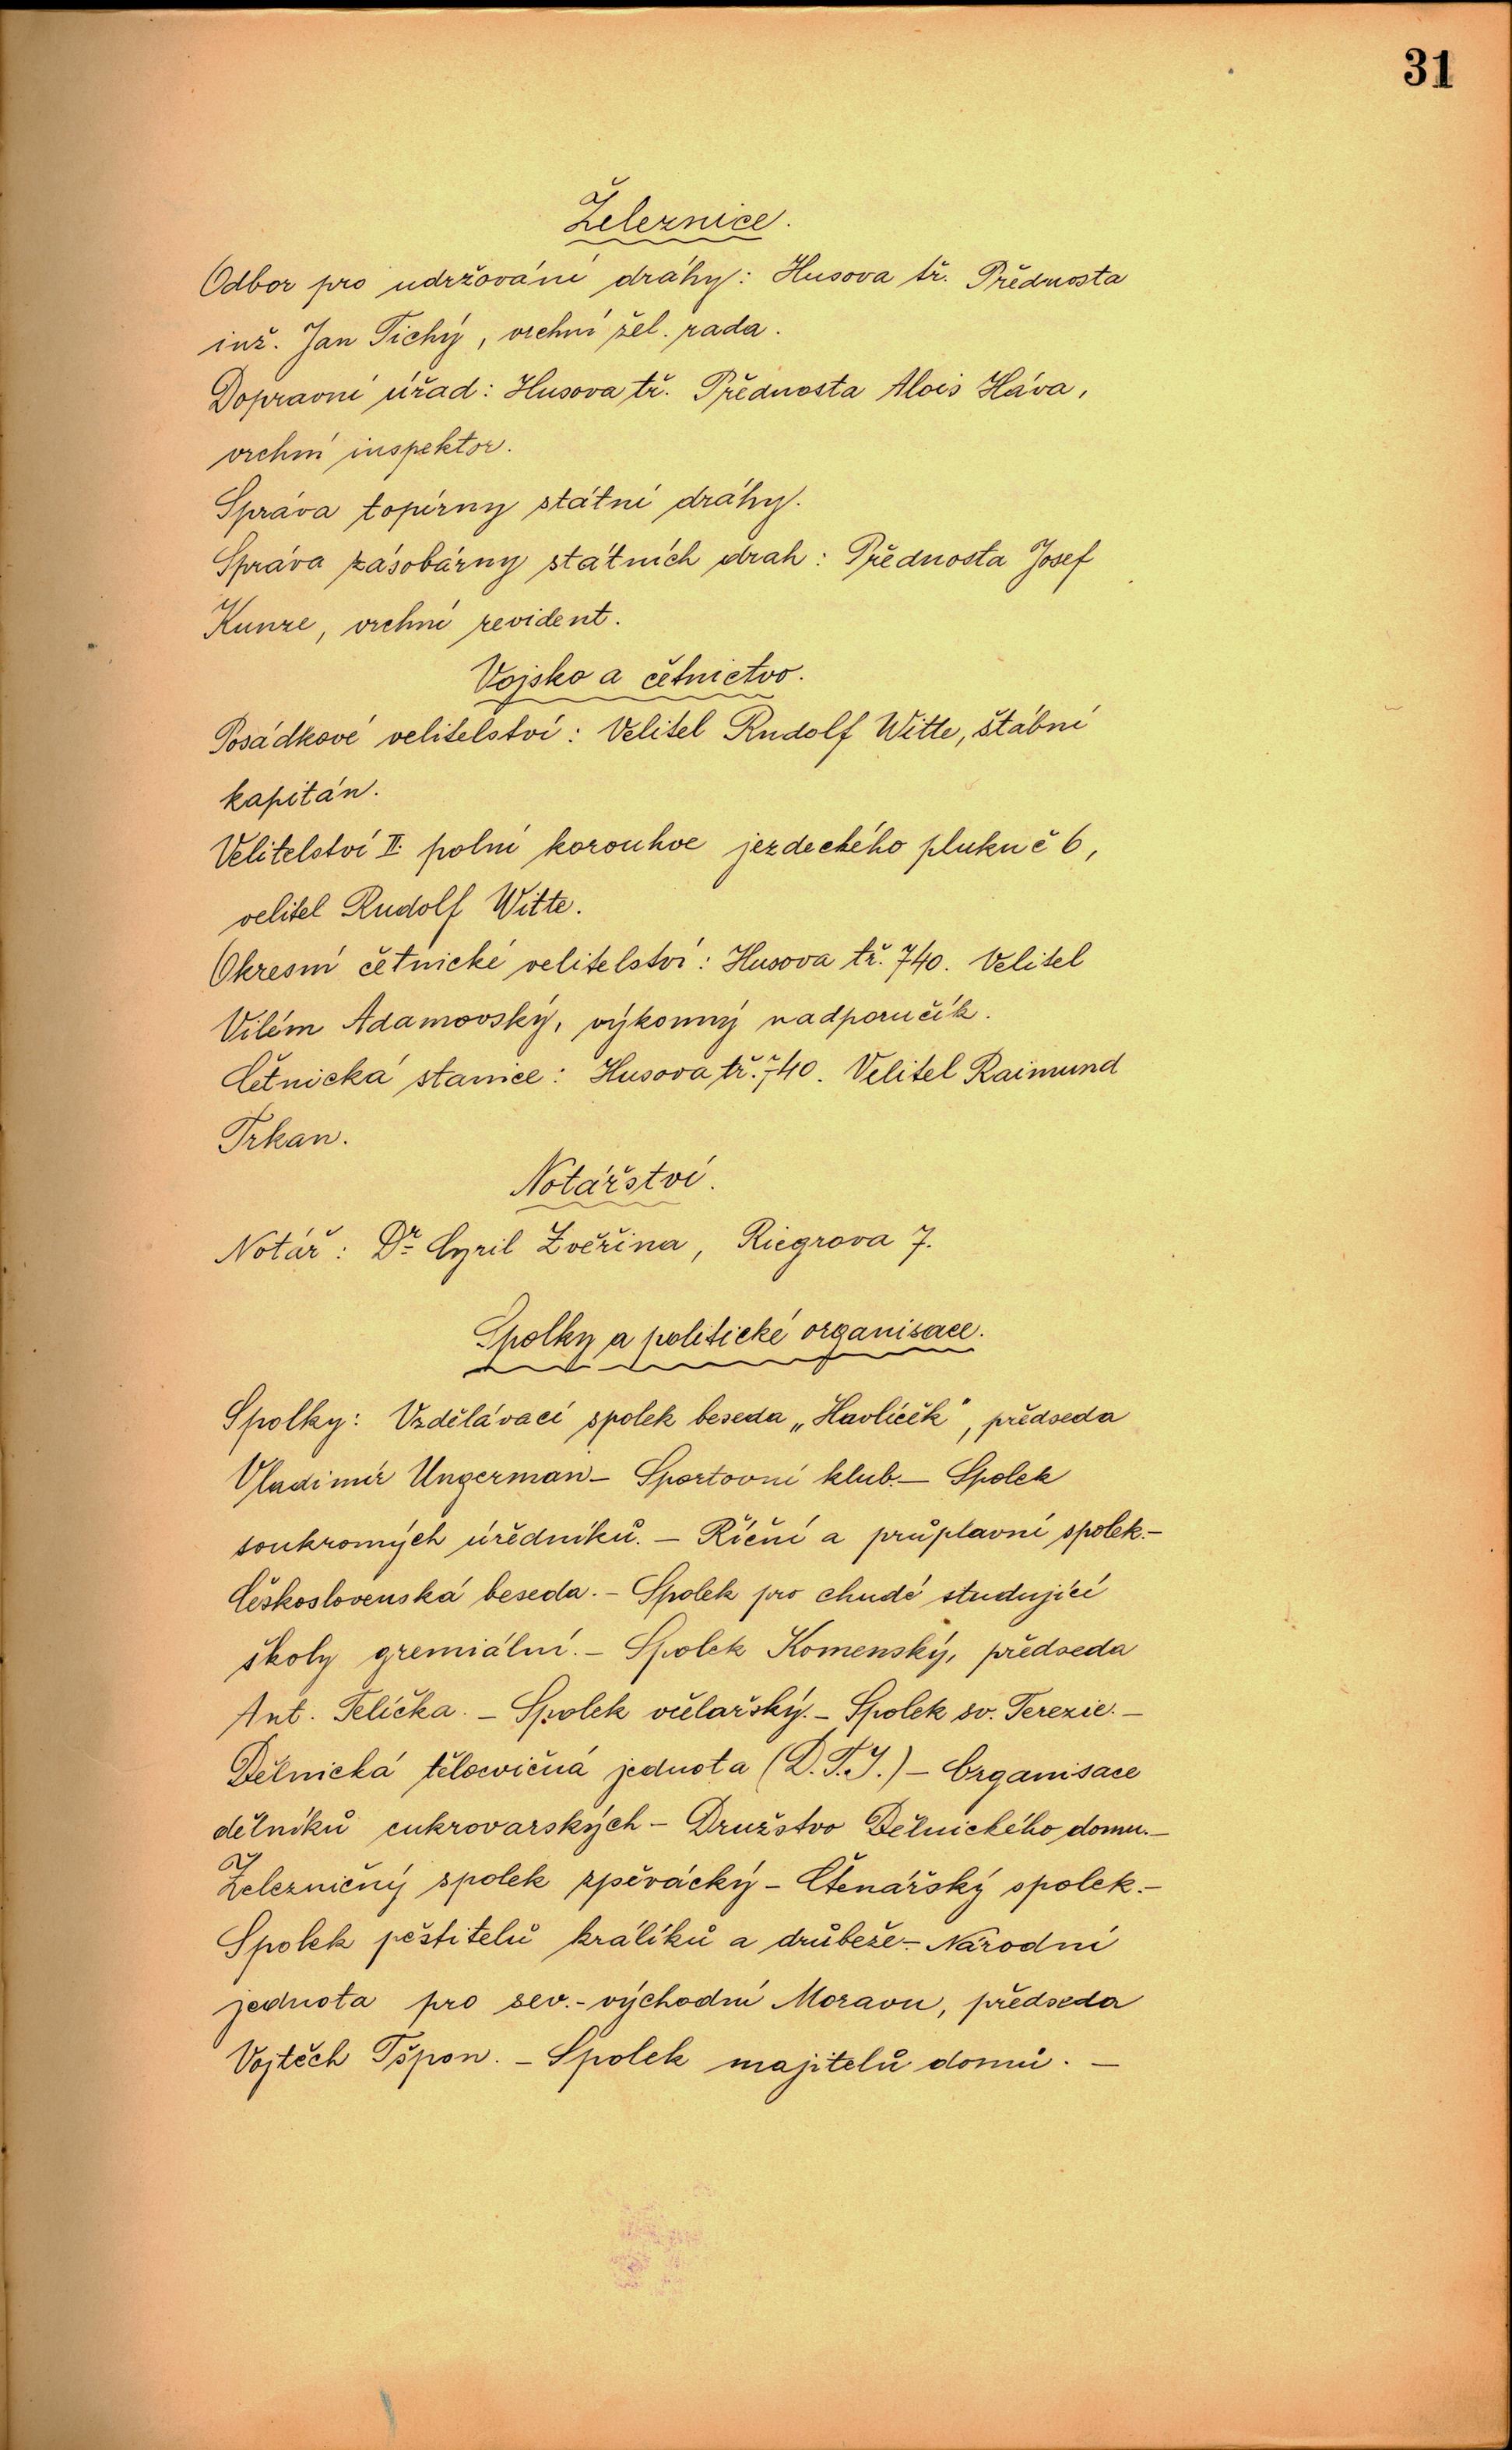 31
Železnice.
Odbor pro udržování dráhy: Husova tř. Přednosta
inž. Jan Tichý, vrchní žel. rada.
Dopravní úřad: Husova tř. Přednosta Alois Háva,
vrchní inspektor.
Správa topírny státní dráhy.
Správa zásobárny státních drah: Přednosta Josef
Kunze, vrchní revident.
Vojsko a četnictvo.
Posádkové velitelství: Velitel Rudolf Witte, štábní
kapitán.
Velitelství II. polní korouhve jezdeckého pluku č 6,
velitel Rudolf Witte.
Okresní četnické velitelství: Husova tř. 740. Velitel
Vilém Adamovský, výkonný nadporučík.
Četnická stanice: Husova tř. 740. Velitel Raimund
Trkan.
Notářství.
Notář: Dr Cyril Zvěřina, Riegrova 7.
Spolky a politické organisace.
Spolky: Vzdělávací spolek beseda „Havlíček", předseda
Vladimír Ungerman – Sportovní klub. – Spolek
soukromých úředníků. – Říční a průplavní spolek. –
Československá beseda. – Spolek pro chudé studující
školy gremiální. – Spolek Komenský, předseda
Ant. Telička. – Spolek včelařský. – Spolek sv. Terezie. –
Dělnická tělocvičná jednota (D.T.J.) – Organisace
dělníků cukrovarských – Družstvo Dělnického domu. –
Železničný spolek zpěvácký – Čtenářský spolek. –
Spolek pěstitelů králíků a drůbeže – Národní
jednota pro sev.-východní Moravu, předseda
Vojtěch Tšpon. – Spolek majitelů domů. –